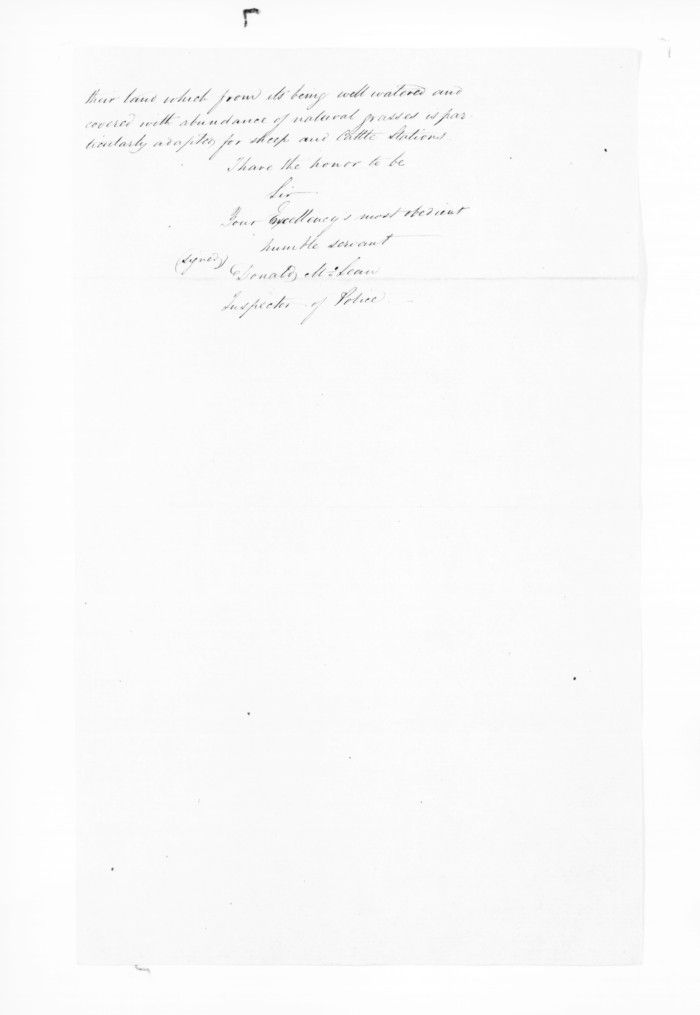 their land which from its being well watered and
covered with abundance of natural grasses is par-
ticularly adapted for sheep and Cattle Stations.
I have the honor to be
Sir
Your Excellency's most obedient
humble servant
(signed) Donald McLean
Inspector of Police